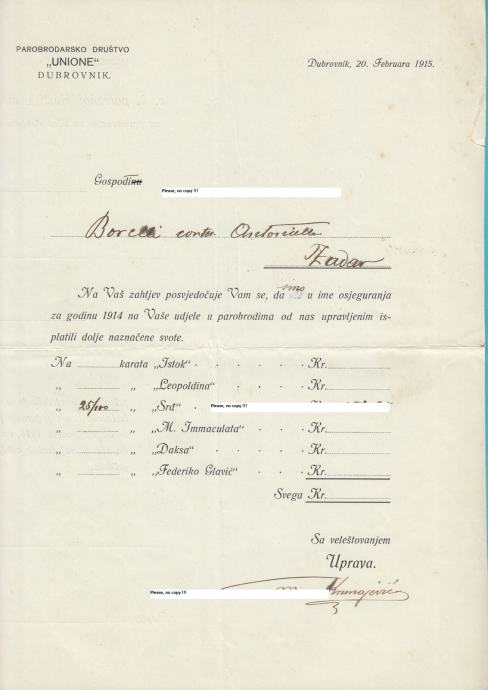 PAROBRODARSKO DRUŠTVO
„UNIONE"
DUBROVNIK.
Dubrovnik, 20. Februara 1915.
Gospodi
Please, no copy !!!
Borelli contes
Zadar
Na Vaš zahtjev posvjedočuje Vam se, da smo u ime osjeguranja
za godinu 1914 na Vaše udjele u parobrodima od nas upravljenim is-
platili dolje naznačene svote.
Na karata „Istok" . . . . . Kr.
„ „ „Leopoldina" . . . . Kr.
„ 25/100 „ „Srđ" Please, no copy !!!
„ „ „M. Immaculata" . . . Kr.
„ „ „Daksa" . . . . . Kr.
„ „ „Federiko Glavić" . . . Kr.
Svega Kr.
Sa veleštovanjem
Uprava.
Please, no copy !!!